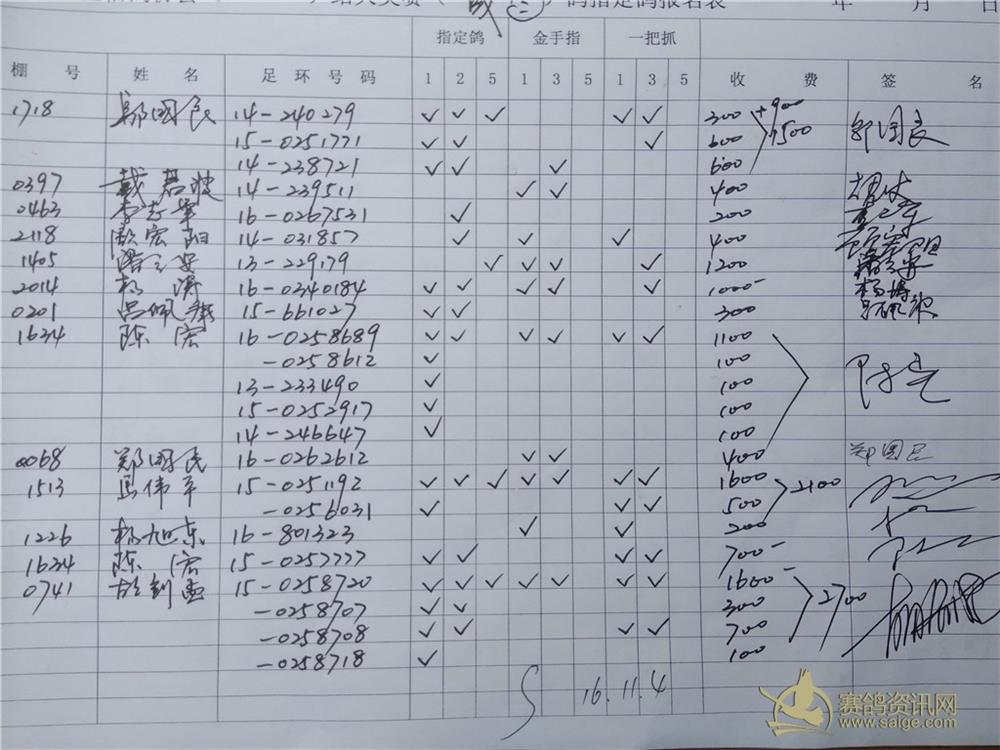 指定鸽报名表 年 月 日
指定鸽 金手指 一把抓
棚 号 姓 名 足 环 号 码 1 2 5 1 3 5 1 3 5 收 费 签 名
1718 郭国良 14-240279 ✓ ✓ ✓ ✓ ✓ 300 +900 1500 郭国良
15-0251771 ✓ ✓ ✓ 600
14-238721 ✓ ✓ ✓ 600
0397 戴君波 14-239511 ✓ ✓ 400
0463 李志军 16-0267531 ✓ 200
2118 宏阳 14-031857 ✓ ✓ ✓ 400
1405 安 13-229179 ✓ ✓ ✓ ✓ 1200
2014 杨涛 16-0340184 ✓ ✓ ✓ ✓ ✓ 1000- 杨涛
0201 吕佩 15-661027 ✓ ✓ 300
1634 陈宏 16-0258689 ✓ ✓ ✓ ✓ ✓ ✓ 1100
-0258612 ✓ 100
13-233490 ✓ 100
15-0252917 ✓ 100
14-246647 ✓ 100
0068 郑国民 16-0262612 ✓ ✓ 400 郑国民
1513 马伟军 15-0251192 ✓ ✓ ✓ ✓ ✓ ✓ ✓ 1600 2100
-0256031 ✓ ✓ ✓ 500
1226 杨旭东 16-801323 ✓ ✓ 200
1634 陈宏 15-0257777 ✓ ✓ ✓ ✓ 700-
0741 胡利孟 15-0258720 ✓ ✓ ✓ ✓ ✓ ✓ ✓ 1600- 2700
-0258707 ✓ ✓ 300
-0258708 ✓ ✓ ✓ ✓ 700
-0258718 ✓ 100
16.11.4
赛鸽资讯网
www.saige.com